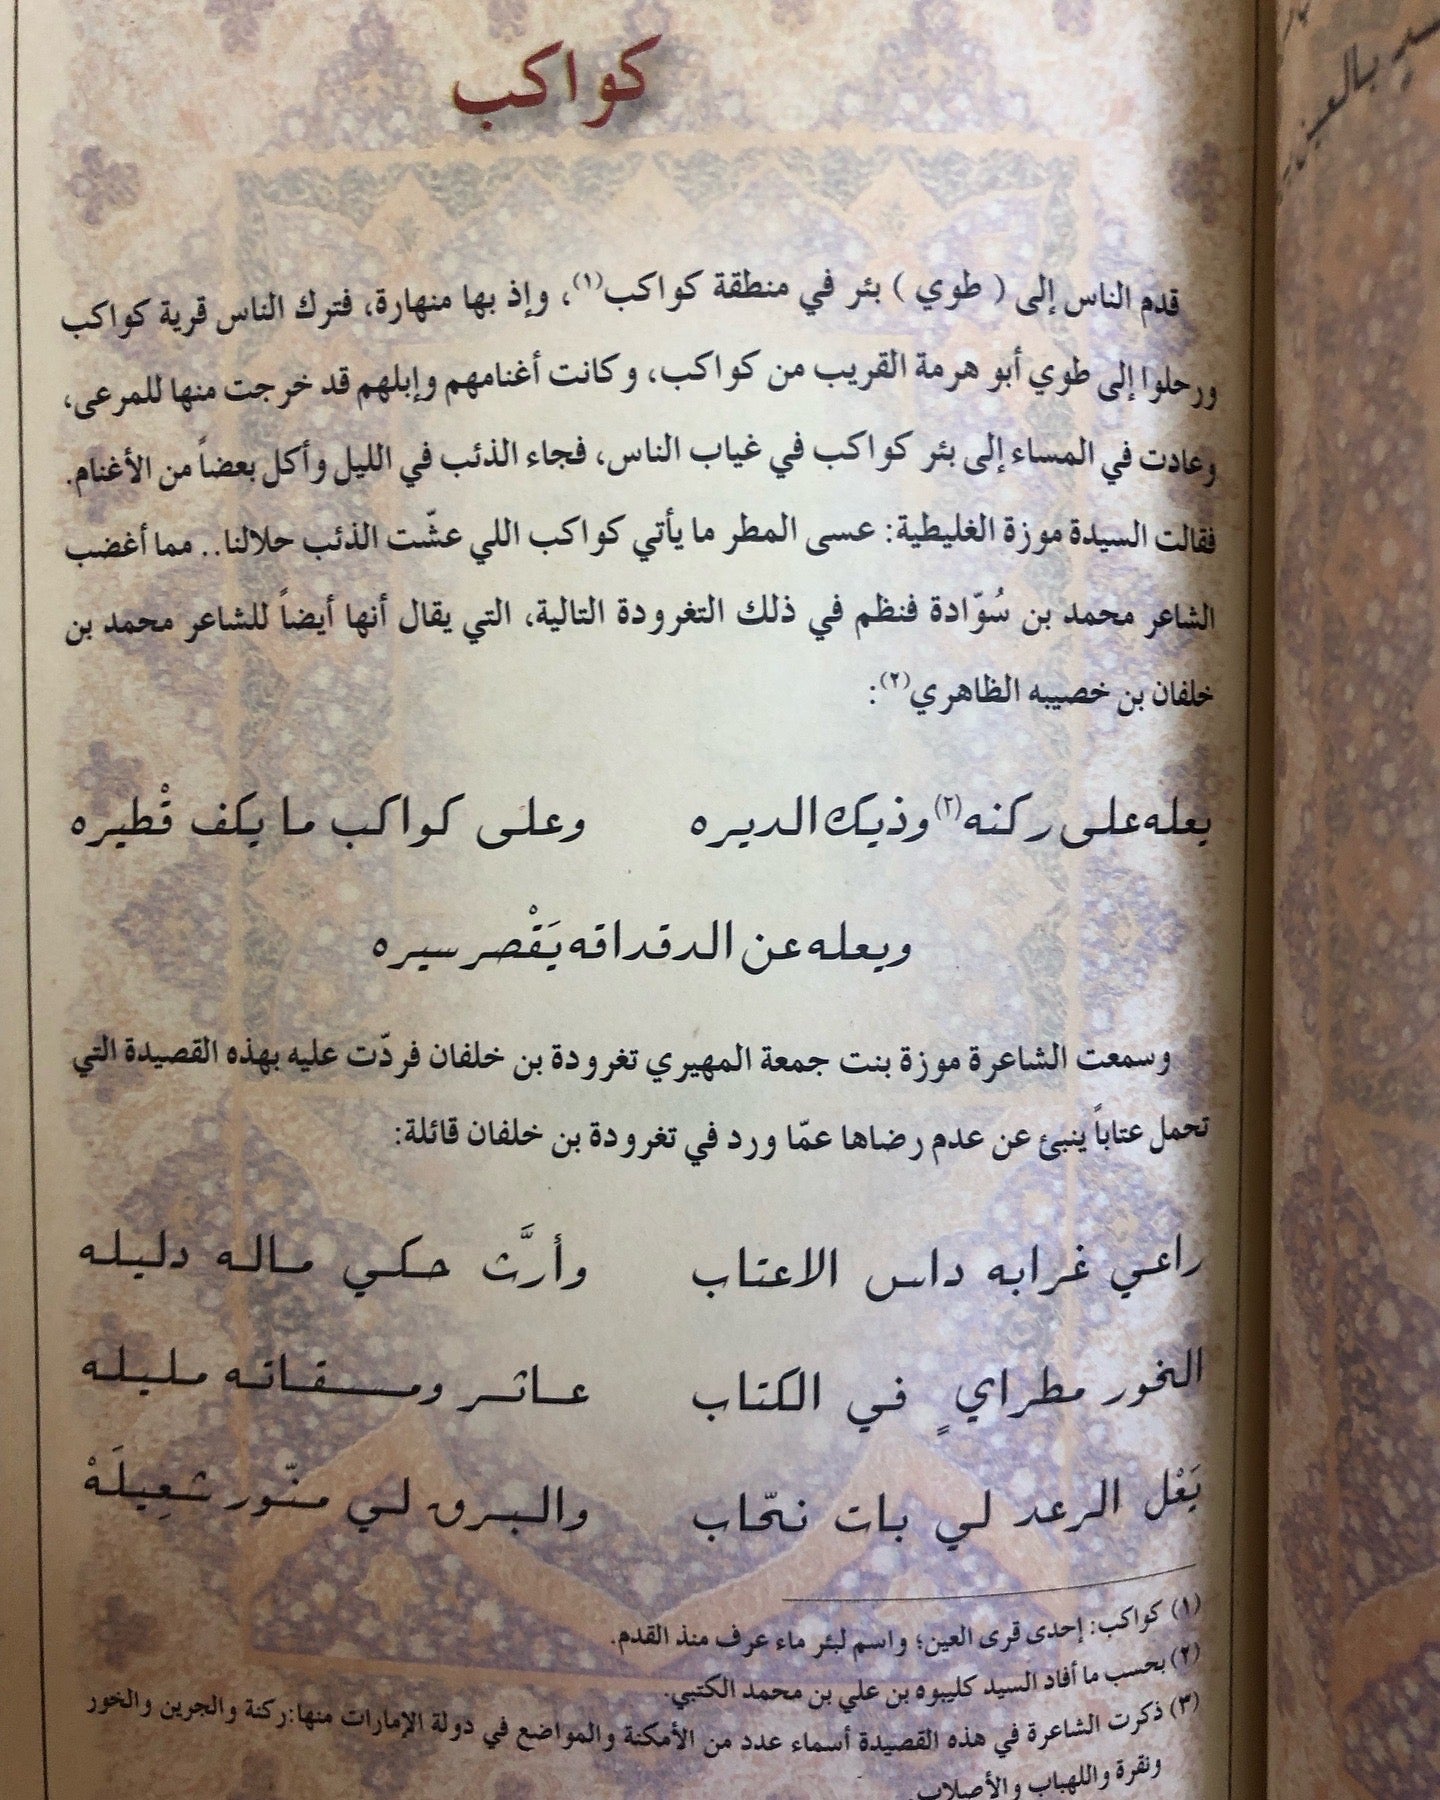 كواكب
قدم الناس إلى ( طوي ) بئر في منطقة كواكب(١)، وإذ بها منهارة، فترك الناس قرية كواكب
ورحلوا إلى طوي أبو هرمة القريب من كواكب، وكانت أغنامهم وإبلهم قد خرجت منها للمرعى،
وعادت في المساء إلى بئر كواكب في غياب الناس، فجاء الذئب في الليل وأكل بعضاً من الأغنام.
فقالت السيدة موزة الغليطية: عسى المطر ما يأتي كواكب اللي عشّت الذئب حلالنا.. مما أغضب
الشاعر محمد بن سُوّادة فنظم في ذلك التغرودة التالية، التي يقال أنها أيضاً للشاعر محمد بن
خلفان بن خصيبه الظاهري(٢):
يعله على ركنه(٣) وذيك الديره وعلى كواكب ما يكف قْطيره
ويعله عن الدقداقه يَقْصر سيره
وسمعت الشاعرة موزة بنت جمعة المهيري تغرودة بن خلفان فردّت عليه بهذه القصيدة التي
تحمل عتاباً ينبئ عن عدم رضاها عمّا ورد في تغرودة بن خلفان قائلة:
راعي غرابه داس الاعتاب وأرَّث حكي ماله دليله
الخور مطرايٍ في الكتاب عاثر ومسقاته مليله
يَعْل الرعد لي بات نحّاب والبرق لي منّور شعِيلَهْ
(١) كواكب: إحدى قرى العين؛ واسم لبئر ماء عرف منذ القدم.
(٢) بحسب ما أفاد السيد كليبوه بن علي بن محمد الكتبي.
(٣) ذكرت الشاعرة في هذه القصيدة أسماء عدد من الأمكنة والمواضع في دولة الإمارات منها:ركنة والجرين والخور
ونقرة واللهباب والأصلاب.
بالعين